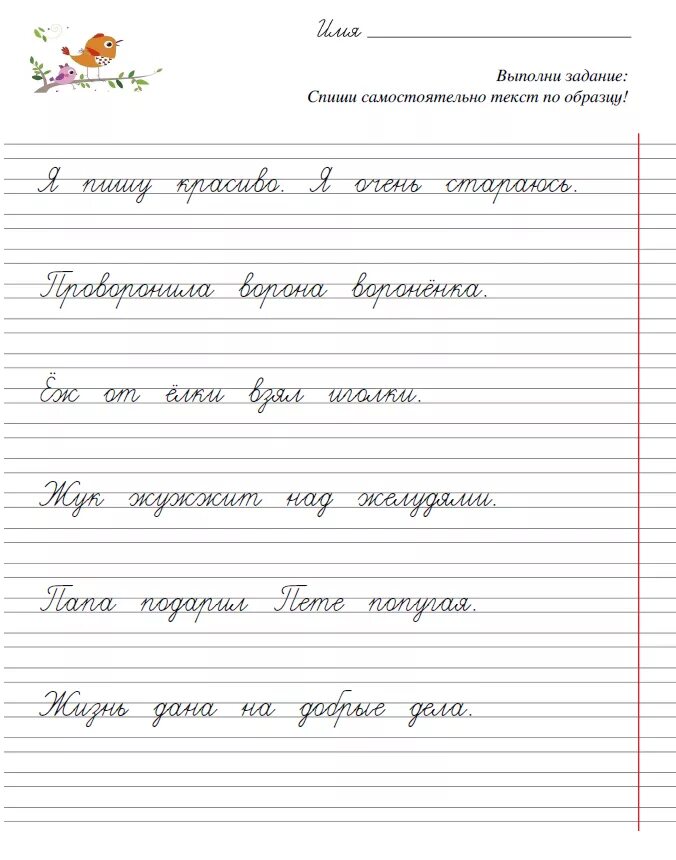 Имя
Выполни задание:
Спиши самостоятельно текст по образцу!
Я пишу красиво. Я очень стараюсь.
Проворонила ворона воронёнка.
Ёж от ёлки взял иголки.
Жук жужжит над желудями.
Папа подарил Пете попугая.
Жизнь дана на добрые дела.